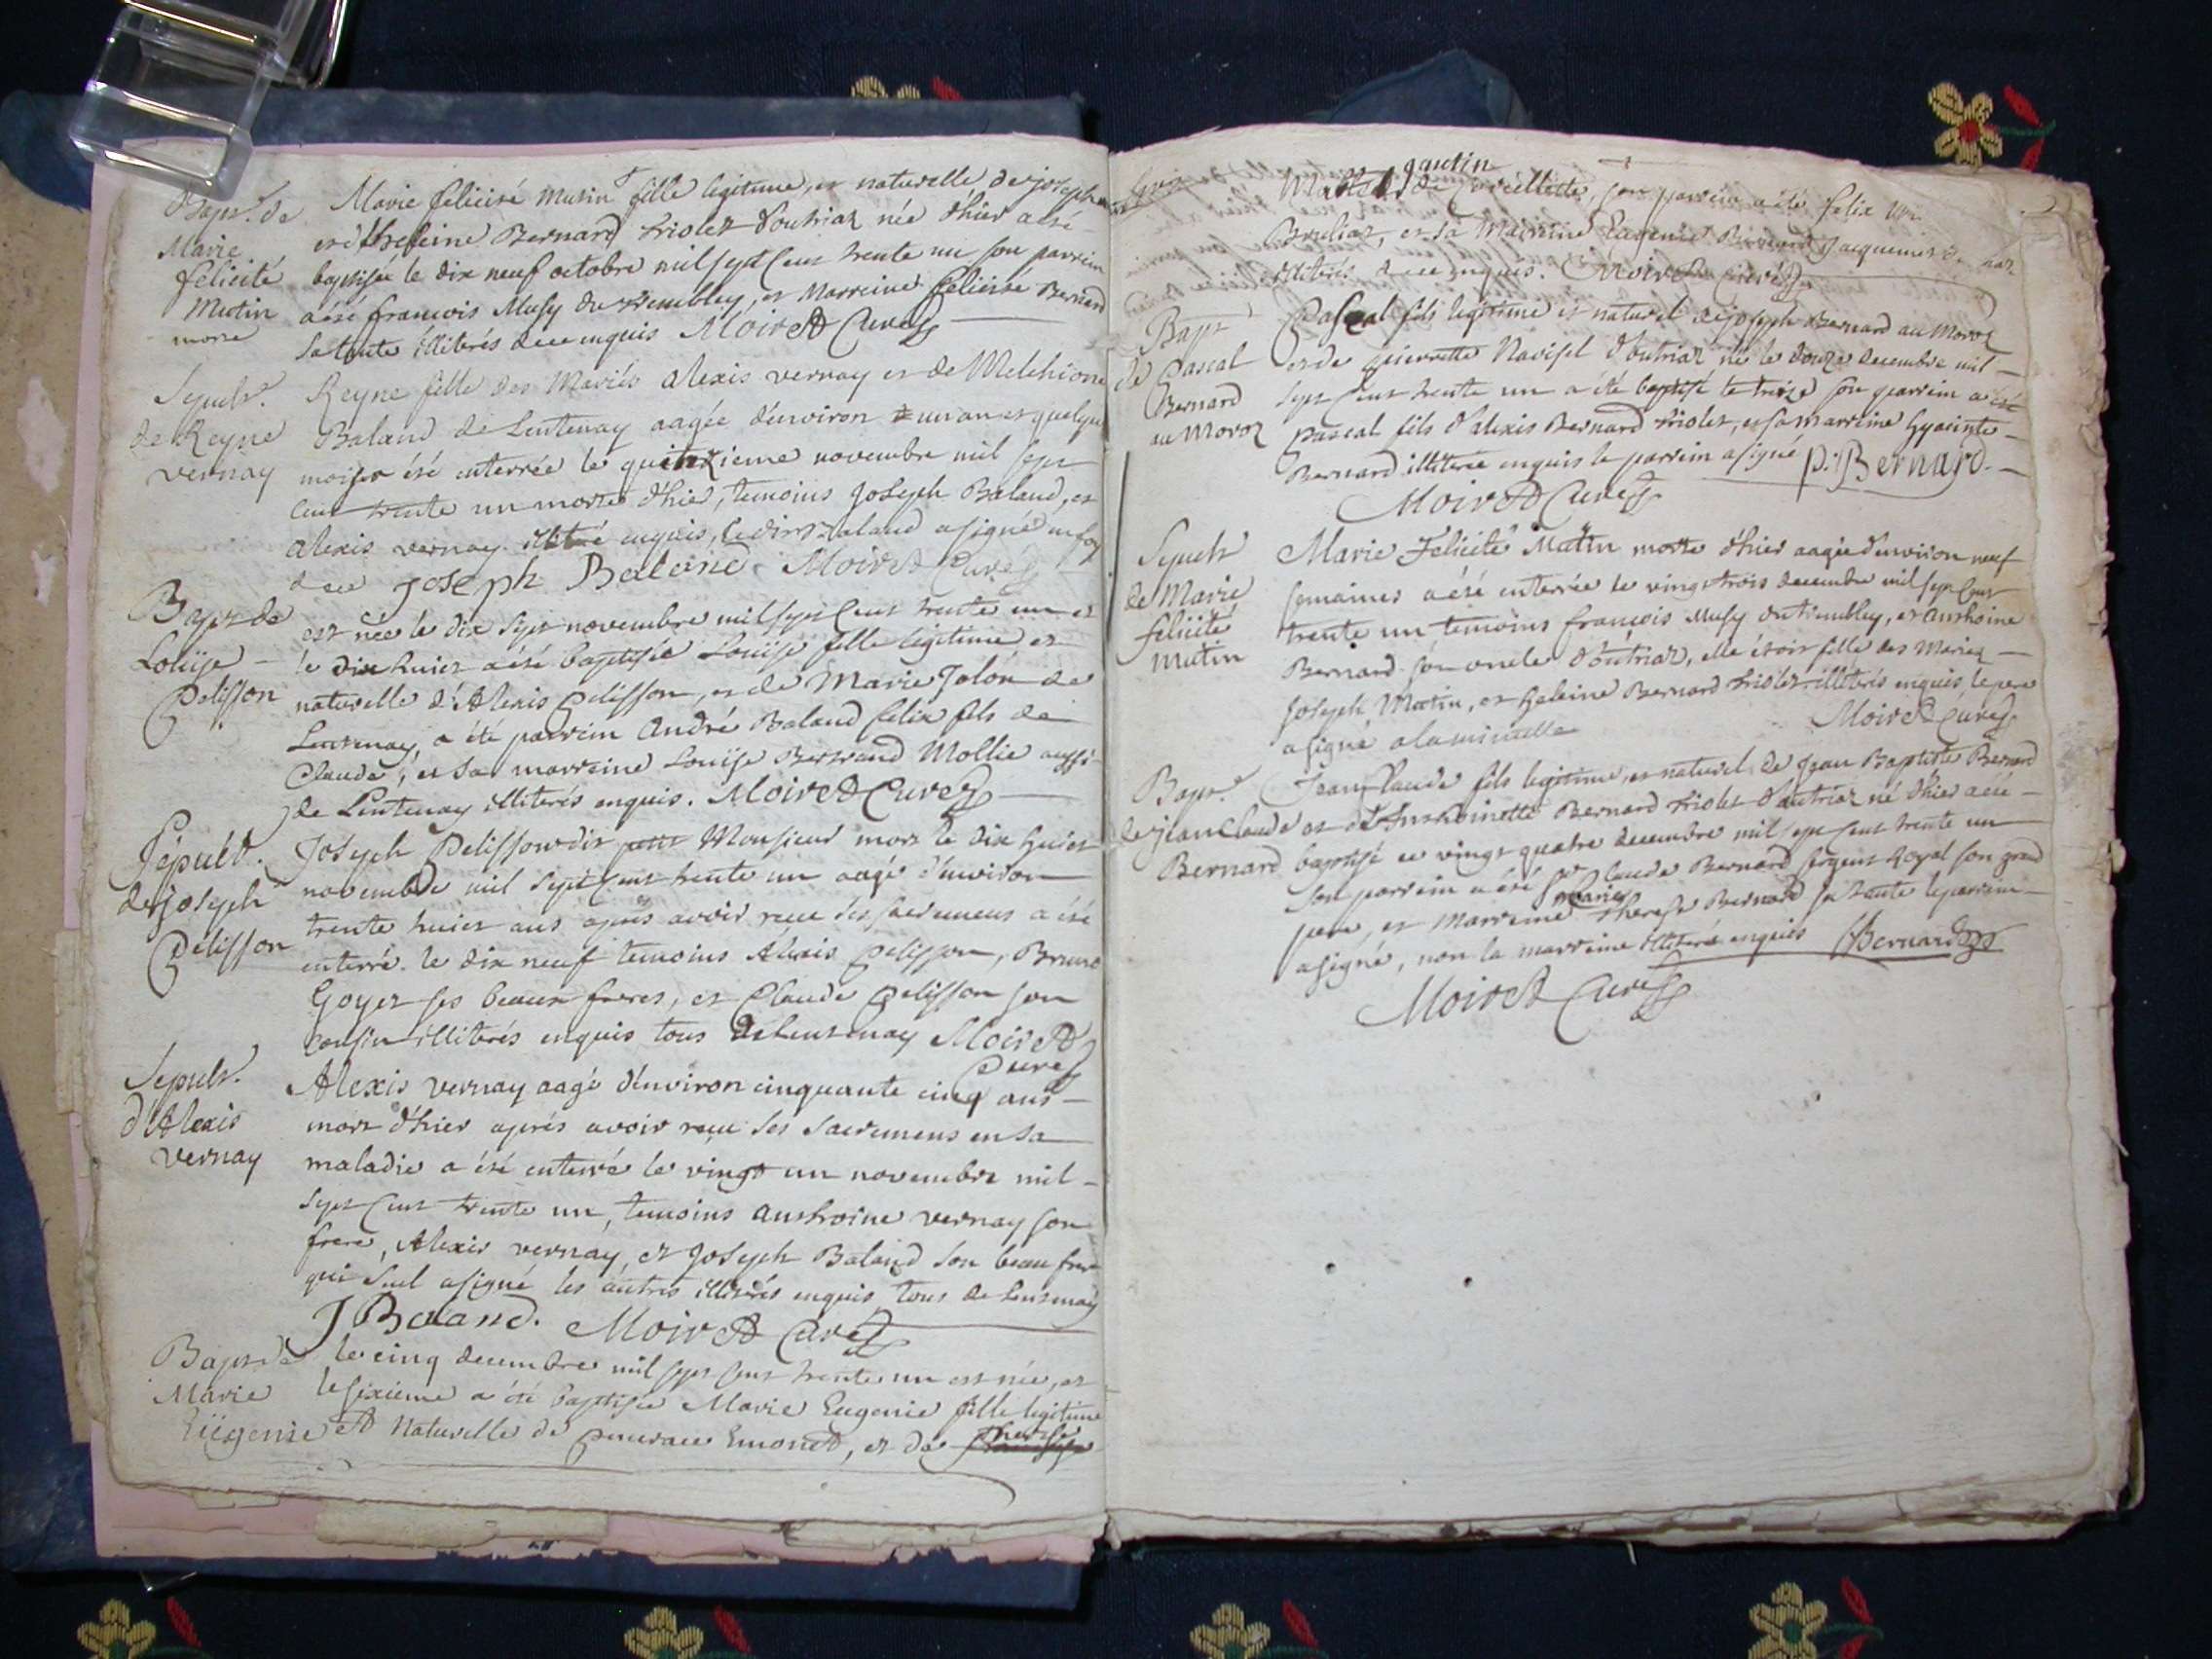 Bapt. de
Marie
felicité
Mutin
morte
Marie felicité Mutin fille legitime, et naturelle de joseph
et d'heleine Bernard triolet d'outriaz née d'hier a été
baptisée le dix neuf octobre mil sept cent trente un son parrein
a été francois Musy du trembley, et Marreine felicité Bernard
sa tante illiterés de ce enquis Moiret Curé
Sepult.
de Reyne
vernay
Reyne fille des Mariés alexis vernay et de Melchionne
Baland de Lentenay aagée d'environ un an et quelque
mois a été enterrée le quinzieme novembre mil sept
cent trente un morte d'hier, temoins Joseph Baland, et
alexis vernay illiteré enquis, ledit Baland a signé en foy
de ce Joseph Baland Moiret Curé
Bapt de
Louïse
Pelisson
est née le dix sept novembre mil sept cent trente un et
le dix huict a été baptisée Louïse fille legitime et
naturelle d'Alexis Pelisson, et de Marie Jolon de
Lentenay, a été parrein andré Baland felix fils de
Claude, et sa marreine Louïse Bertrand Mollie aussi
de Lentenay illiterés enquis. Moiret Curé
Sépult.
de Joseph
Pelisson
Joseph Pelisson dit petit Monsieur mort le dix huict
novembre mil sept cent trente un aagé d'environ
trente huict ans après avoir receu ses sacremens a été
enterré le dix neuf temoins Alexis Pelisson, Bruno
Goyet ses beaux freres, et Claude Pelisson son
cousin illiterés enquis tous de Lentenay Moiret
Curé
Sepult.
d'Alexis
vernay
Alexis vernay aagé d'environ cinquante cinq ans
mort d'hier aprés avoir reçu ses sacremens en sa
maladie a été enterré le vingt un novembre mil
sept cent trente un, temoins anthoine vernay son
frere, Alexis vernay, et Joseph Baland son beau frere
qui seul a signé les autres illiterés enquis tous de Lentenay
J Baland. Moiret Curé
Bapt de
Marie
Eugenie
le cinq decembre mil sept cent trente un est née, et
le sixieme a été baptisée Marie Eugenie fille legitime
et Naturelle de Emonet, et de therese
gautin
de Corcellette, son parrein a été felix
Brulias, et sa Marreine Eugenie Bernard Jacquemet
illiterés de ce enquis. Moiret Curé
Bapt
de Pascal
Bernard
au Moroz
Pascal fils legitime et naturel de joseph Bernard au Moroz
et de pierrette Navisel d'outriaz né le douze decembre mil
sept cent trente un a été baptisé le treize son parrein a été
pascal fils d'alexis Bernard triolet, et sa marreine hyacinte
Bernard illiterée enquis le parrein a signé P. Bernard.
Moiret Curé
Sepult
de Marie
felicité
Mutin
Marie Felicité Mutin morte d'hier aagée d'environ neuf
semaines a été enterrée le vingt trois decembre mil sept cent
trente un temoins francois Musy du trembley, et anthoine
Bernard son oncle d'outriaz, elle étoit fille des Mariez
Joseph Mutin, et heleine Bernard triolet illiterés enquis, le pere
a signé a la minutte Moiret Curé
Bapt.
de jean Claude
Bernard
Jean Claude fils legitime, et naturel de Jean Baptiste Bernard
et d'Anthoinette Bernard triolet d'outriaz né d'hier a été
baptisé ce vingt quatre decembre mil sept cent trente un
son parrein a été Sr Claude Bernard sergent Royal son grand
pere, et Marreine Marie therese Bernard sa tante le parrein
a signé, non la marreine illiterée enquis Bernard
Moiret Curé